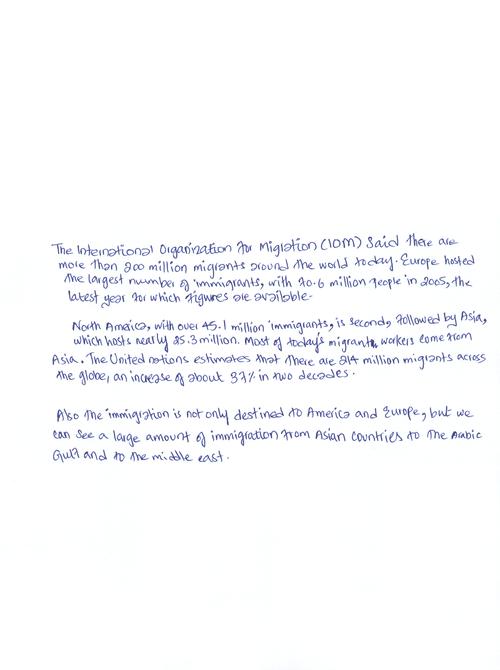 The International Organization for Migration (IOM) Said there are
more than 200 million migrants around the world today. Europe hosted
the largest number of immigrants, with 70.6 million people in 2005, the
latest year for which figures are availble.
North Ameica, with over 45.1 million immigrants, is second, followed by Asia,
which hosts nearly 25.3 million. Most of today's migrants workers come from
Asia. The United nations estimates that there are 214 million migrants across
the globe, an increase of about 37% in two decades.
Also the immigration is not only destined to America and Europe, but we
can see a large amount of immigration from Asian countries to the Arabic
Gulf and to the middle east.